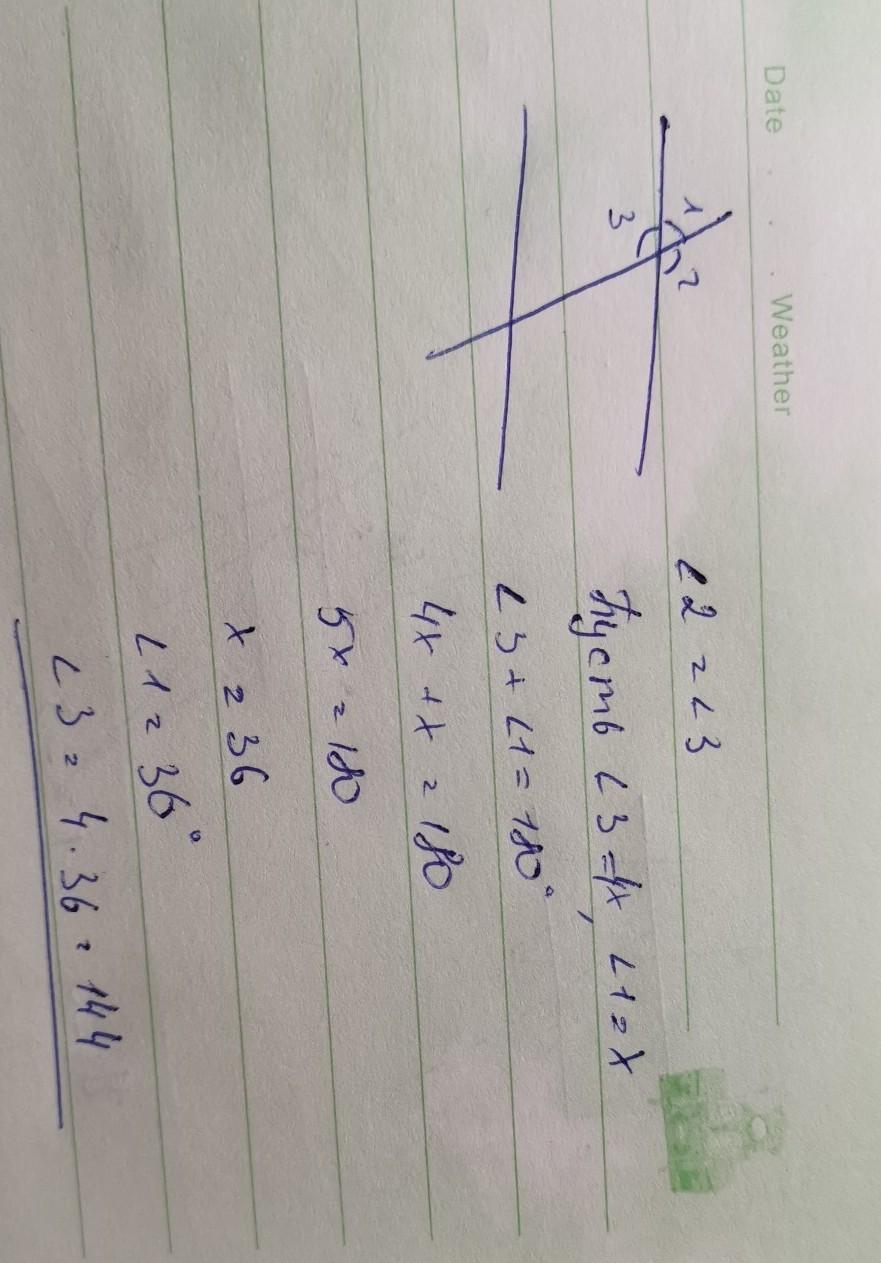 Date . . . Weather
1
2
3
∠2 = ∠3
Пусть ∠3=4x, ∠1=x
∠3+∠1=180°
4x+x=180
5x=180
x=36
∠1=36°
∠3=4·36=144